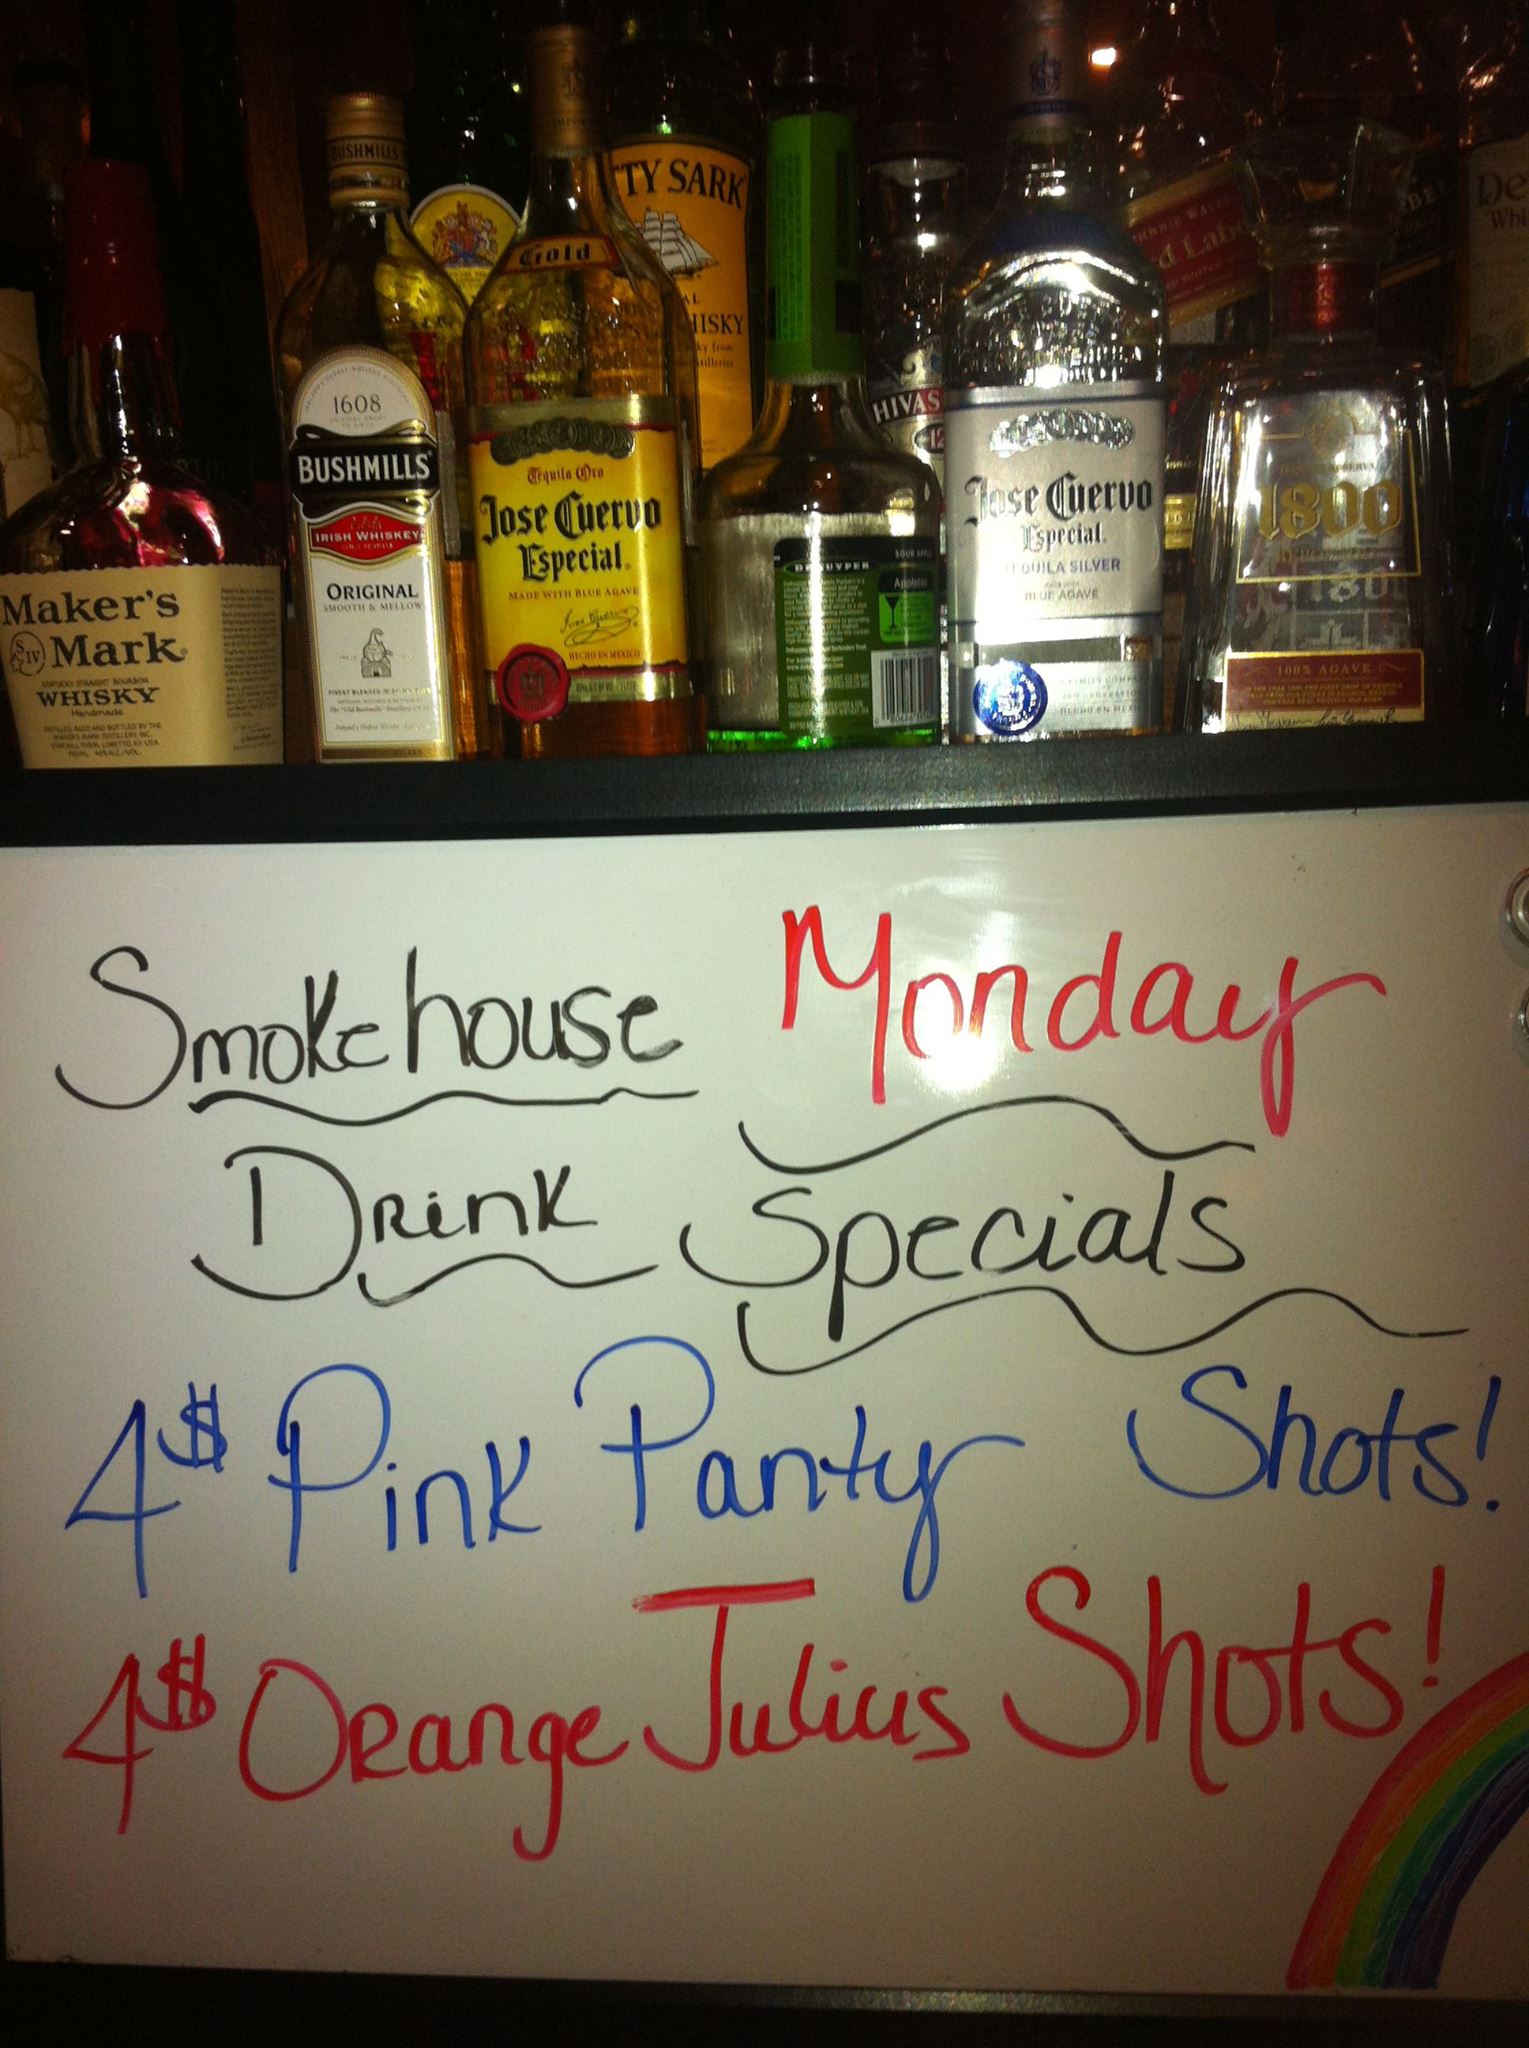 BUSHMILLS
TTY SARK
Gold
HISKY
1608
BUSHMILLS
IRISH WHISKEY
ORIGINAL
SMOOTH & MELLOW
Tequila Oro
Jose Cuervo
Especial
MADE WITH BLUE AGAVE
HECHO EN MEXICO
Maker's
Mark
SIV
KENTUCKY STRAIGHT BOURBON
WHISKY
Handmade
SOUR APPLE
DEKUYPER
HIVAS
12
Jose Cuervo
Especial
TEQUILA SILVER
BLUE AGAVE
HECHO EN MEXI
d Labe
1800
100% AGAVE
De
Whi
Smokehouse Monday
Drink Specials
4$ Pink Panty Shots!
4$ Orange Julius Shots!